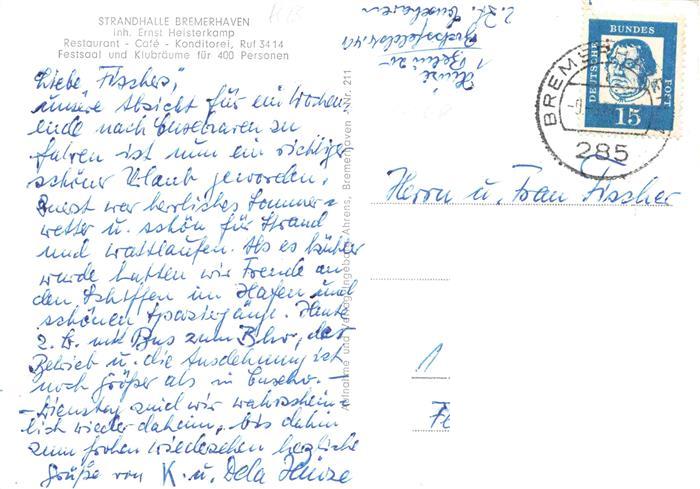 STRANDHALLE BREMERHAVEN
Inh. Ernst Heisterkamp
Restaurant - Café - Konditorei, Ruf 3414
Festsaal und Klubräume für 400 Personen
Liebe Fischers,
unsere Absicht für ein Wochen
ende nach Cuxhaven zu
fahren ist nun ein richtiger
schöner Urlaub geworden.
Zuerst war herrliches Sommer=
wetter u. schön für Strand
und Wattlaufen. Als es kühler
wurde hatten wir Freude an
den Schiffen im Hafen und
schönen Spaziergänge. Heute
z. B. mit Bus zum Bhv, der
Betrieb u. die Ausdehnung ist
noch größer als in Cuxhv. –
– Dienstag sind wir wahrschein
lich wieder daheim, bis dahin
zum frohen Wiedersehen herzliche
Grüße von K. u. Dela Hinze
Aufnahme und Verlag Ingeborg Ahrens, Bremerhaven - Nr. 211
z. Zt. Cuxhaven
Hinze
1 Berlin 20
DEUTSCHE BUNDESPOST
15
BREM
285
Herrn u. Frau Fischer
1
Fe